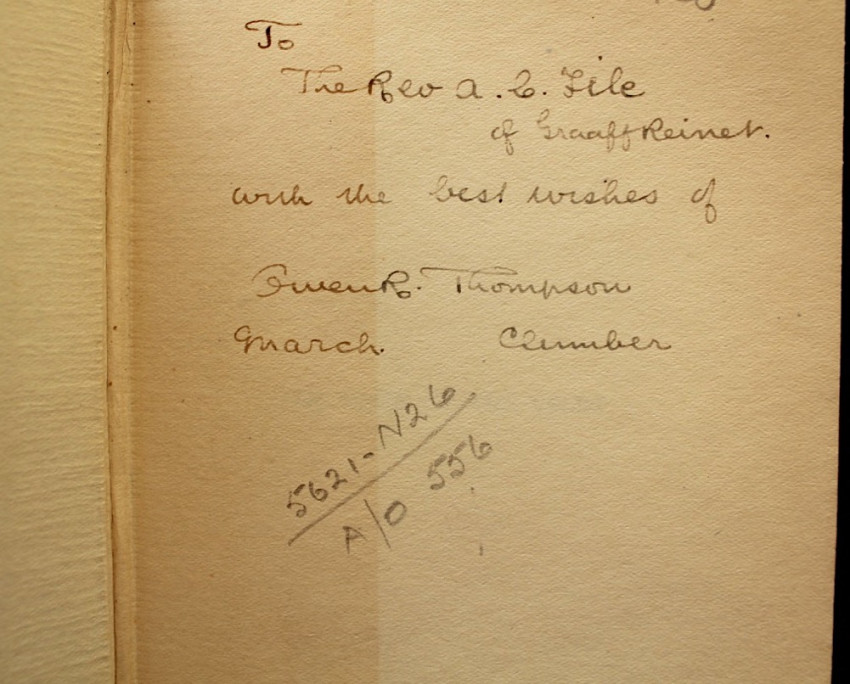 To
The Rev A. C. File
of Graaff Reinet.
with the best wishes of
Owen R. Thompson
March. Clumber
5621-N26
A/O 556